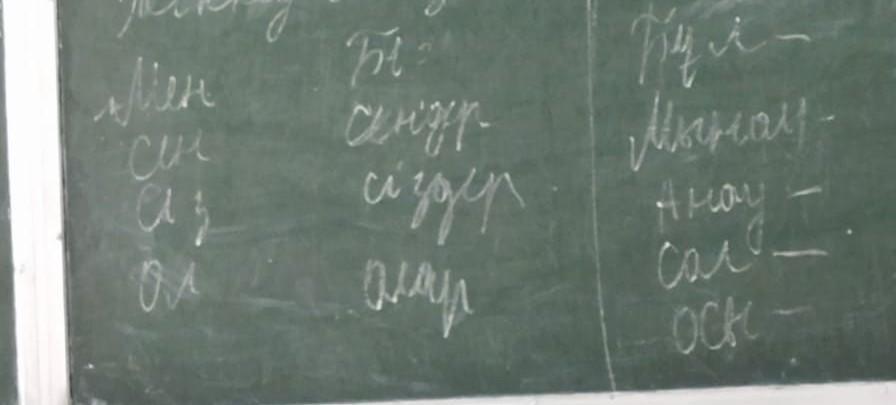 Мен
сен
сіз
ол
Біз
сендер
сіздер
олар
Бұл —
Мынау -
Анау —
Сол —
осы —